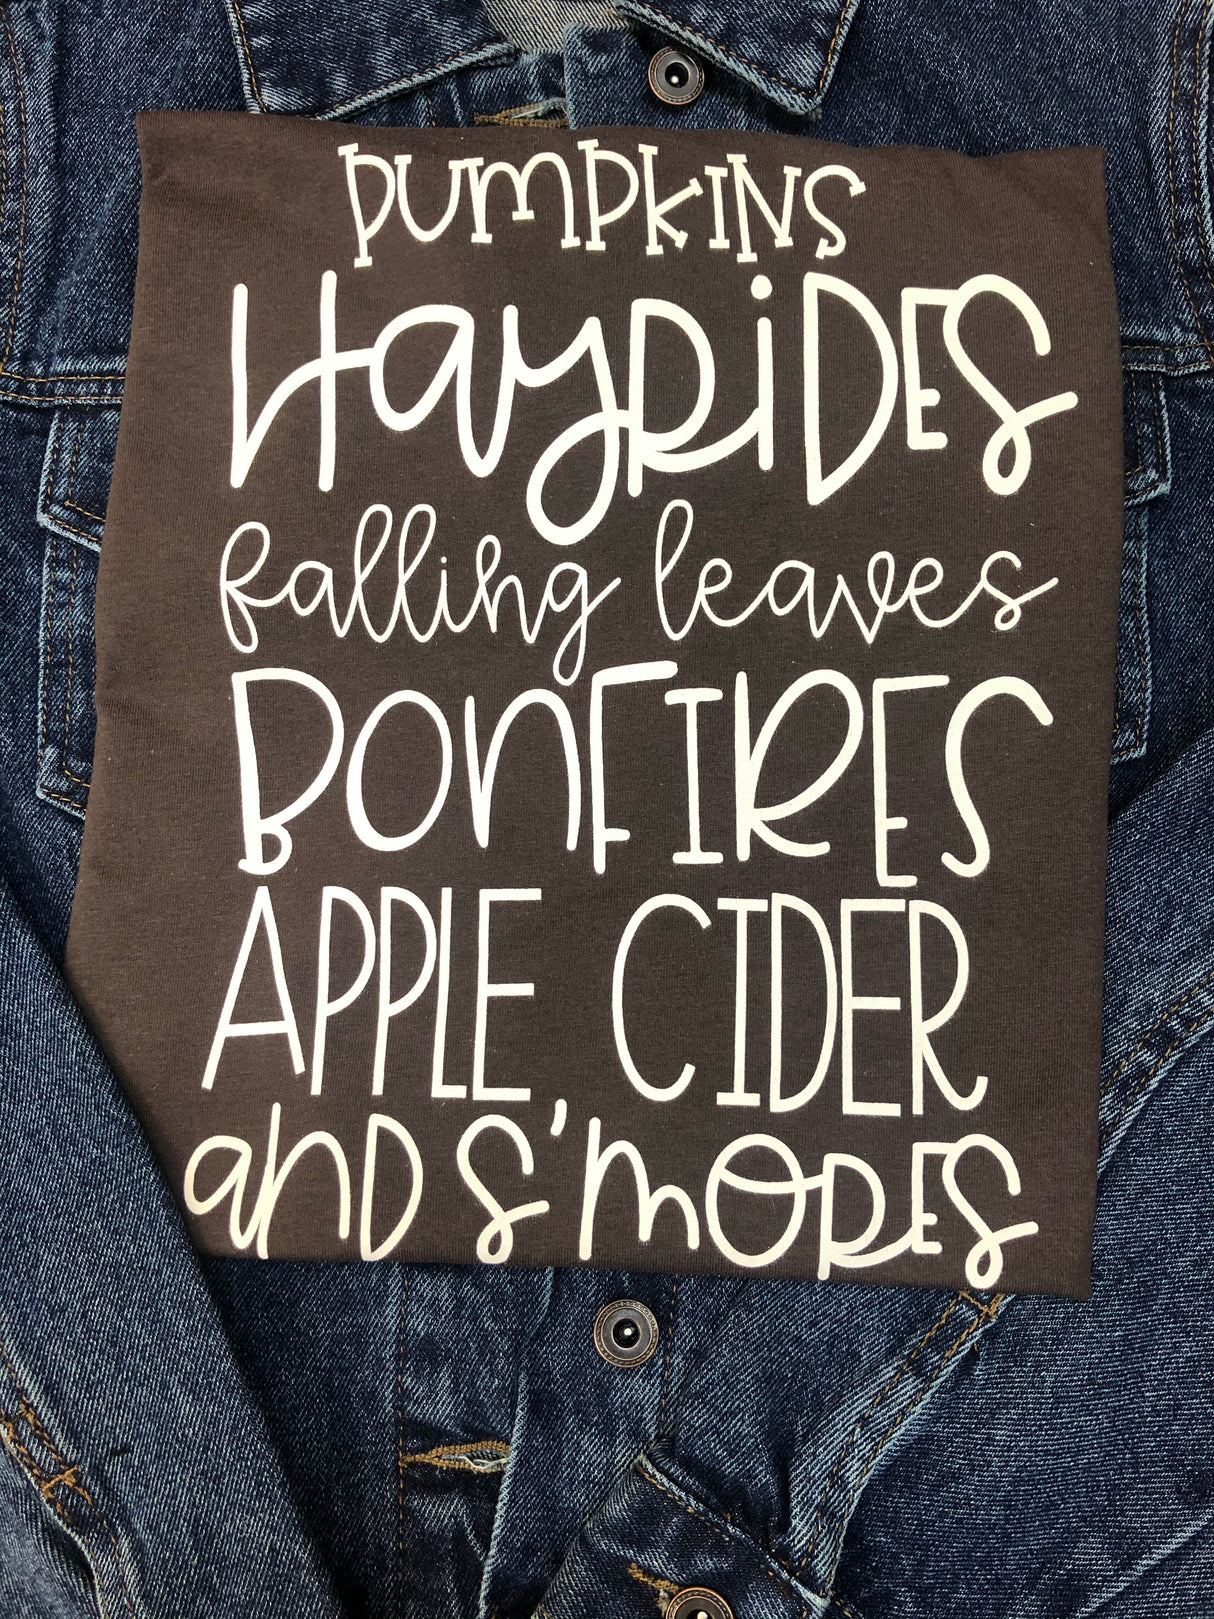 PUMPKINS
HayRiDES
falling leaves
BONFIRES
APPLE CIDER
and S'mORES